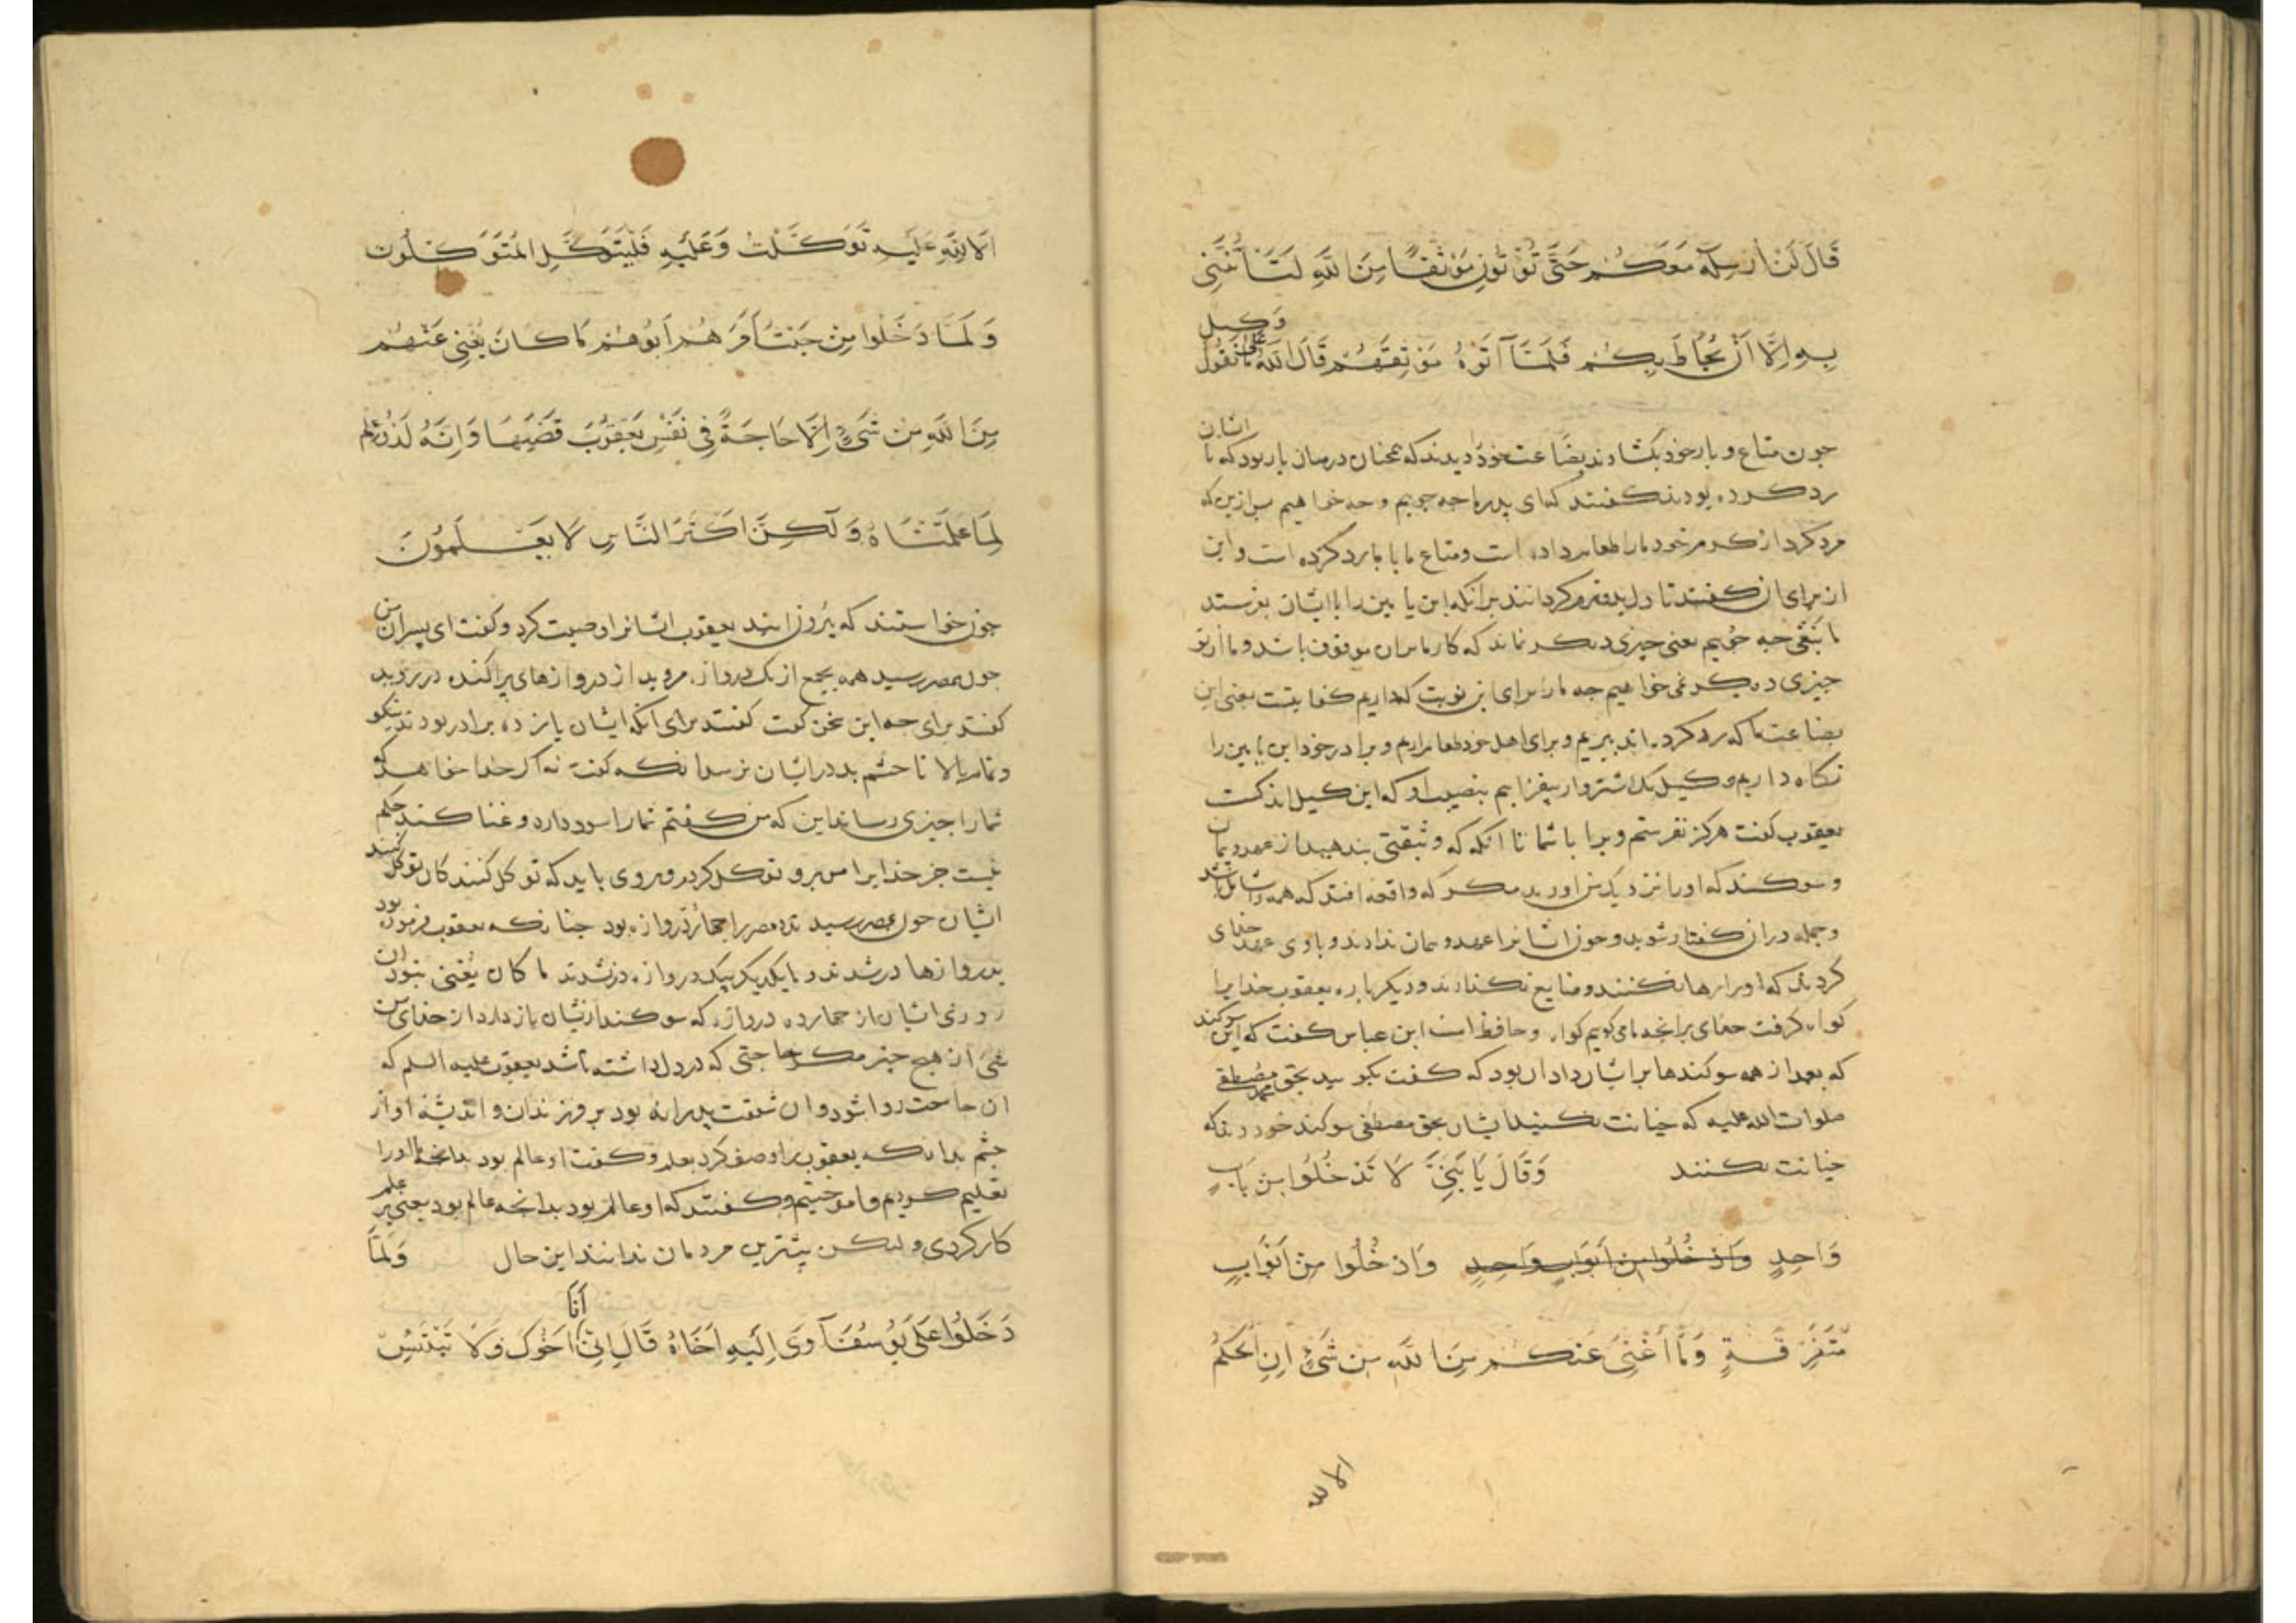 قَالَ لَنْ اُرْسِلَهُ مَعَكُمْ حَتَّى تُؤْتُونِ مَوْثِقًا مِنَ اللَّهِ لَتَأْتُنَّنِي
بِهِ اِلَّا اَنْ يُحَاطَ بِكُمْ فَلَمَّا آتَوْهُ مَوْثِقَهُمْ قَالَ اللَّهُ عَلَى مَا نَقُولُ وَكِيل
جون متاع و بار خود بکشادند بضاعت خود دیدند که همجنان درمیان بار بود که با ایشان
رد کرده بودند کفتند که ای پدر ما جه جوییم و جه خواهیم بس ازین که
مرد کرد از کرم خود مارا طعام داد است و متاع ما با ما رد کرده است و این
از برای ان کفتند تا دل پدر نرم کردانند برانکه ابن یامین را با ایشان بفرستد
ما نبغی جه جوییم یعنی جیزی دیکر نماند که کار ما بران موقوف باشد و ما از تو
جیزی دیکر نمی خواهیم جه مارا برای این نوبت که داریم کفایتست یعنی این
بضاعت ما که رد کرده اند ببریم و برای اهل خود طعام اریم و برادر خود ابن یامین را
نکاه داریم و کیل یک اشتروار بیفزاییم بنصیب او که این کیل اندکست
یعقوب کفت هرکز نفرستم ویرا با شما تا انکه که وثیقتی بندهید از عهد و پیمان
و سوکند که اورا نزدیک من اورید مکر که واقعه افتد که همه را شامل باشد
و جمله دران کفتار شوید و جون ایشانرا عهد و پیمان ندادند و با وی عهد خدای
کردند که اورا رها نکنند و ضایع نکذارند و دیکر باره یعقوب خدایرا
کواه کرفت خدای برانجه ما می کوییم کواه و حافظ است ابن عباس کفت که این سوکند
که بعد از همه سوکندها بر ایشان داد ان بود که کفت بکویید بحق محمد مصطفی
صلوات الله علیه که خیانت نکنید ایشان بحق مصطفی سوکند خوردند که
خیانت نکنند وَقَالَ يَا بَنِيَّ لَا تَدْخُلُوا مِنْ بَابٍ
وَاحِدٍ وَادْخُلُوا مِنْ اَبْوَابٍ وَاحِدٍ وَادْخُلُوا مِنْ اَبْوَابٍ
مُتَفَرِّقَةٍ وَمَا اُغْنِي عَنْكُمْ مِنَ اللَّهِ مِنْ شَيْءٍ اِنِ الْحُكْمُ
الا لله
اِلَّا لِلَّهِ عَلَيْهِ تَوَكَّلْتُ وَعَلَيْهِ فَلْيَتَوَكَّلِ الْمُتَوَكِّلُونَ
وَلَمَّا دَخَلُوا مِنْ حَيْثُ اَمَرَهُمْ اَبُوهُمْ مَا كَانَ يُغْنِي عَنْهُمْ
مِنَ اللَّهِ مِنْ شَيْءٍ اِلَّا حَاجَةً فِي نَفْسِ يَعْقُوبَ قَضَيهَا وَاِنَّهُ لَذُو عِلْمٍ
لِمَا عَلَّمْنَاهُ وَلَكِنَّ اَكْثَرَ النَّاسِ لَا يَعْلَمُونَ
جون خواستند که بیرون ایند یعقوب ایشانرا وصیت کرد و کفت ای پسران من
جون بمصر رسید همه بجمع از یک دروازه مروید از دروازهای پراکنده در روید
کفتند برای جه این سخن کفت کفتند برای انکه ایشان یازده برادر بودند نیکو
و تمام بالا تا جشم بد در ایشان نرسد انکه کفت نه اکر خدا خواهد که
شمارا جیزی رساند این که من کفتم شمارا سود دارد و غنا کند حکم
نیست جز خدایرا من برو توکل کردم و بروی باید که توکل کنند کان توکل کنند
ایشان جون بمصر رسیدند مصر را جهار دروازه بود جنانکه یعقوب فرموده بود
بدروازها درشدند و با یکدیکر بیک دروازه درنشدند ما کان یغنی نبود ان
شیء از هیج جیز مکر حاجتی که در دل داشته باشد یعقوب علیه السلم که
ان حاجت روا شود و ان شفقت پدرانه بود بر فرزندان و اندیشه او از
جشم بد انکه یعقوب را وصف کرد بعلم و کفت او عالم بود بدانجه ما اورا
تعلیم کردیم و اموختیم و کفتند که او عالم بود بدانجه عالم بود یعنی بر علم
کار کردی و لیکن بیشترین مردمان ندانند این حال وَلَمَّا
دَخَلُوا عَلَى يُوسُفَ آوَى اِلَيْهِ اَخَاهُ قَالَ اِنِّي اَنَا اَخُوكَ فَلَا تَبْتَئِسْ